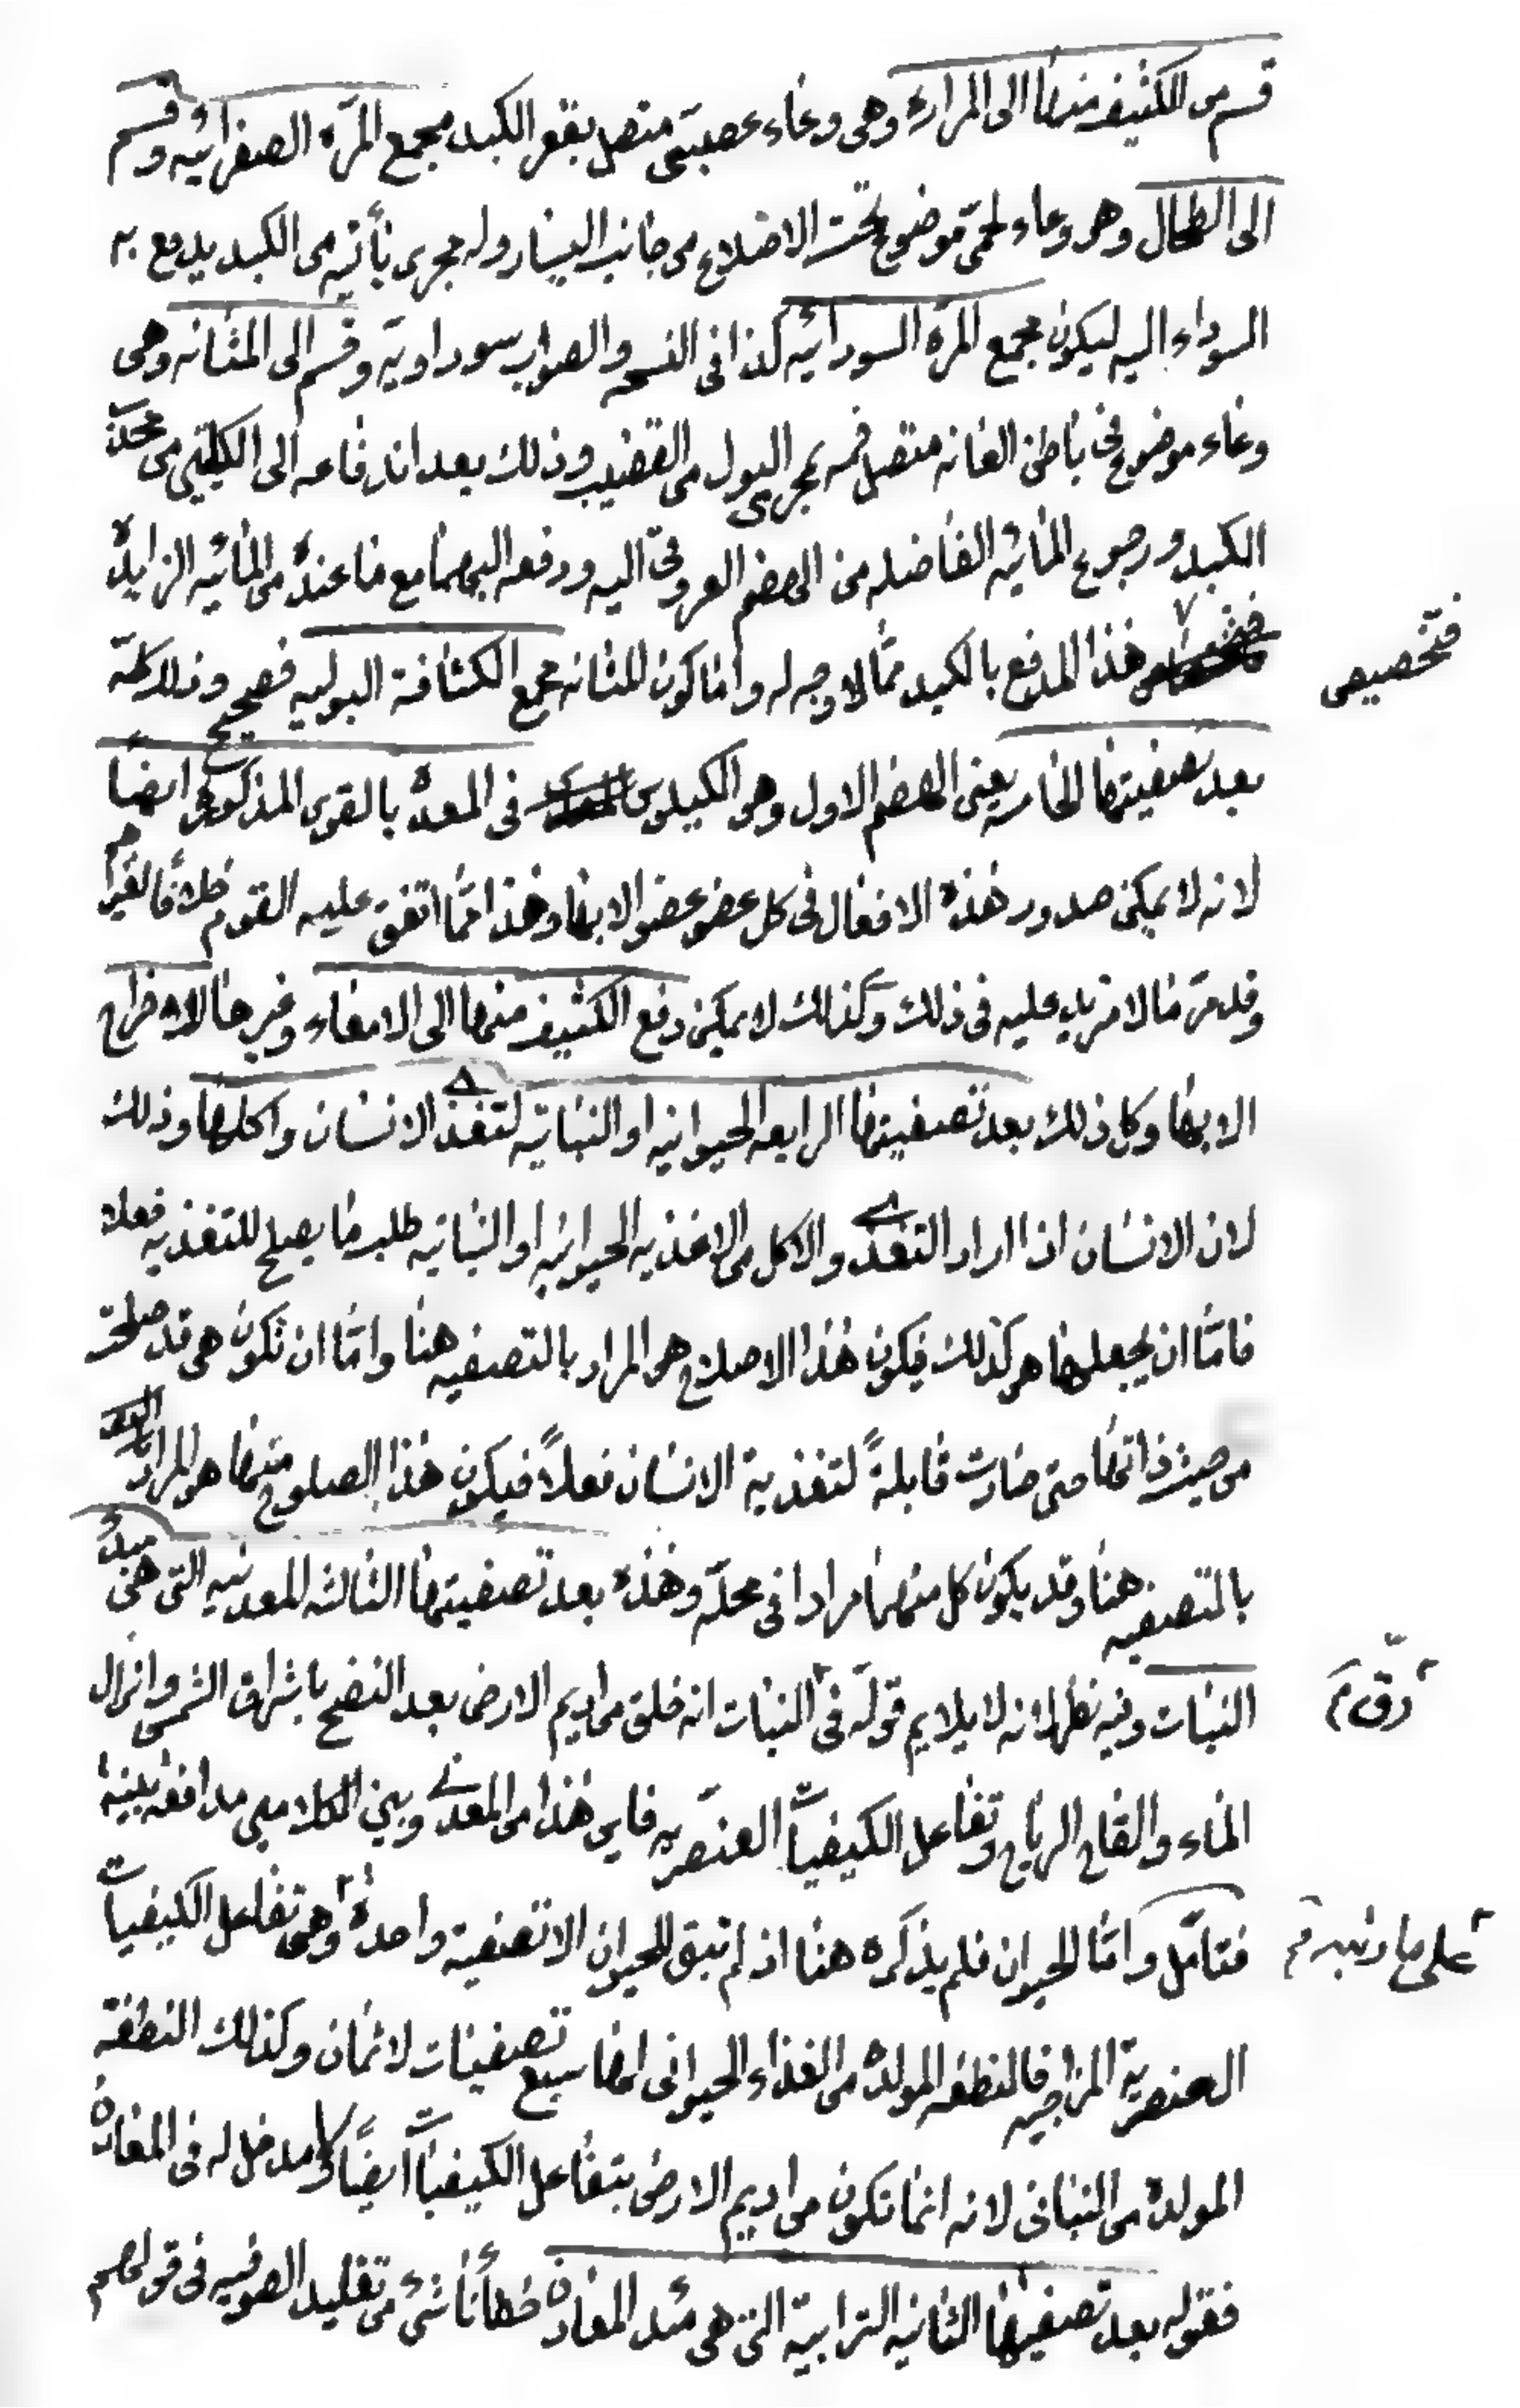 قسم من الكثيف منها الى المرارة وهى وعاء عصبتى متصل بقعر الكبد مجمع المرّه الصفرائيه وقسم
الى الطحال وهو وعاء لحمّى موضوع تحت الاضلاع من جانب اليسار وله مجرى يأتيه من الكبد يدفع به
السوداء اليه ليكون مجمع المرّه السودائيه كذا فى النسخه والصواب سوداويّه وقسم الى المثانه وهى
وعاء موضوع فى باطن العانه متصل فمه بمجرى البول من القضيب وذلك بعد اندفاعه الى الكليتين من محدّب
الكبد ورجوع المائيّه الفاضله من الهضم العروقى اليه ودفعه اليهما مع ما عنده من المائيّه الزايدة
فتخصيص هذا المدفع بالكبد ممّا لا وجه له وامّا كون المثانه مجمع الكثافة البوليه فصحيح وذلك كلّه
بعد تصفيتها الخامسه يعنى الهضم الاول وهو الكيلوس فى المعدة بالقوى المذكورة ايضاً
لانه لا يمكن صدور هذه الافعال فى كل عضو عضو الا بها وهذا ممّا اتفق عليه القوم خلافًا لغيرهم
وقد مرّ ما لا مزيد عليه فى ذلك وكذلك لا يمكن دفع الكثيف منها الى الامعاء وغيرها للاخراج
الا بها وكل ذلك بعد تصفيتها الرابعه الحيوانيه او النباتيه لتغذى الانسان واكلها وذلك
لان الانسان اذا اراد التغذى والاكل من الاغذيه الحيوانيّه او النباتيه طلب ما يصلح للتغذيه فعلا
فامّا ان يجعلها هو كذلك فيكون هذا الاصلاح هو المراد بالتصفيه هنا وامّا ان تكون هى قد صلحت
من حيث ذاتها حتى صارت قابلةً لتغذية الانسان فعلاً فيكون هذا الصلوح منها هو المراد
بالتصفيه هنا وقد يكون كل منهما مرادا فى محلّه وهذه بعد تصفيتها الثالثه المعدنيه التى هى مبدء
النبات وفيه نظر لانه لا يلايم قوله فى النبات انه خلق من اديم الارض بعد النضج باشراق الشمس وانزال
الماء والقاح الرياح وتفاعل الكيفيات العنصريّه فاين هذا من المعدنى وبين الكلامين مدافعه بيّنة
فتامّل وامّا الحيوان فلم يذكره هنا اذ لم تبق للحيوان الا تصفية واحدة وهى تفاعل الكيفيات
العنصرية المزاجيه فالنطفه المولدة من الغذاء الحيوانى لها سبع تصفيات لا ثمان وكذلك النطفة
المولدة من النباتى لانه انما تكون من اديم الارض بتفاعل الكيفيات ايضاً ولا مدخل له فى المعادن
فقوله بعد تصفيتها الثانيه الترابية التى هى مبدء المعادن خطأ ناشئ من تقليد الصوفيه فى قولهم
فتخصيص